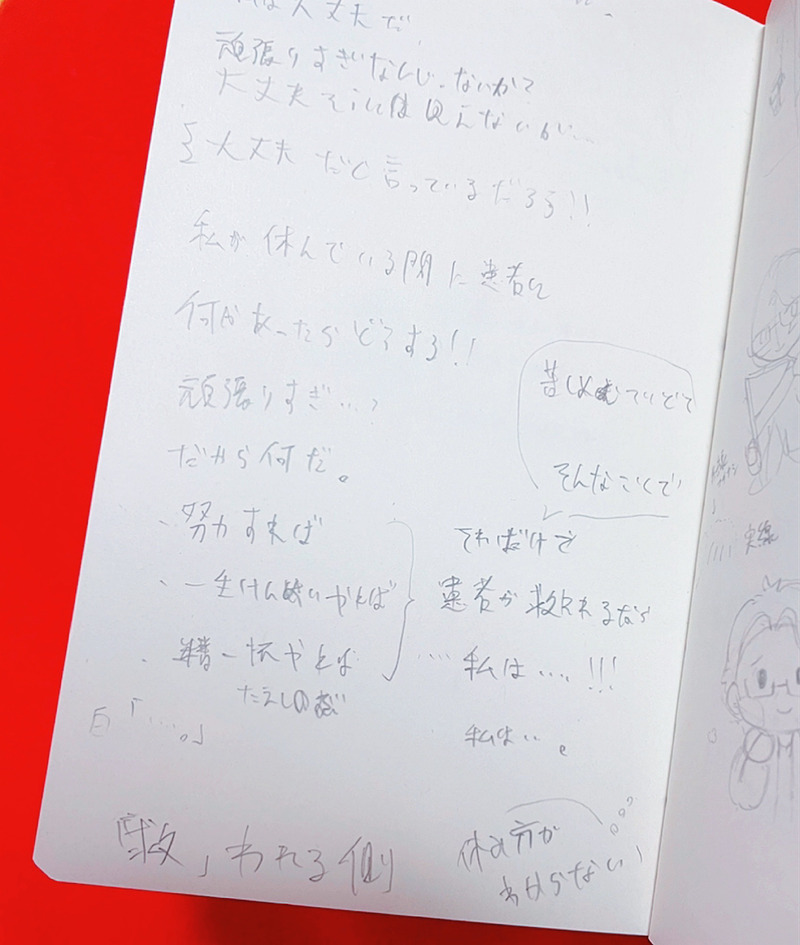 私は大丈夫だ
頑張りすぎなんじゃないか?
大丈夫そうには見えないが…
大丈夫だと言っているだろう!!
私が休んでいる間に患者に
何かあったらどうする!!
頑張りすぎ…?
だから何だ。
・努力すれば
・一生けんめいやれば
・精一杯やれば
白「….。」
苦しむていどで
そんなことで
それだけで
患者が救われるなら
…私は….!!!
私は…。
「救」われる側
休み方が
わからない
実線